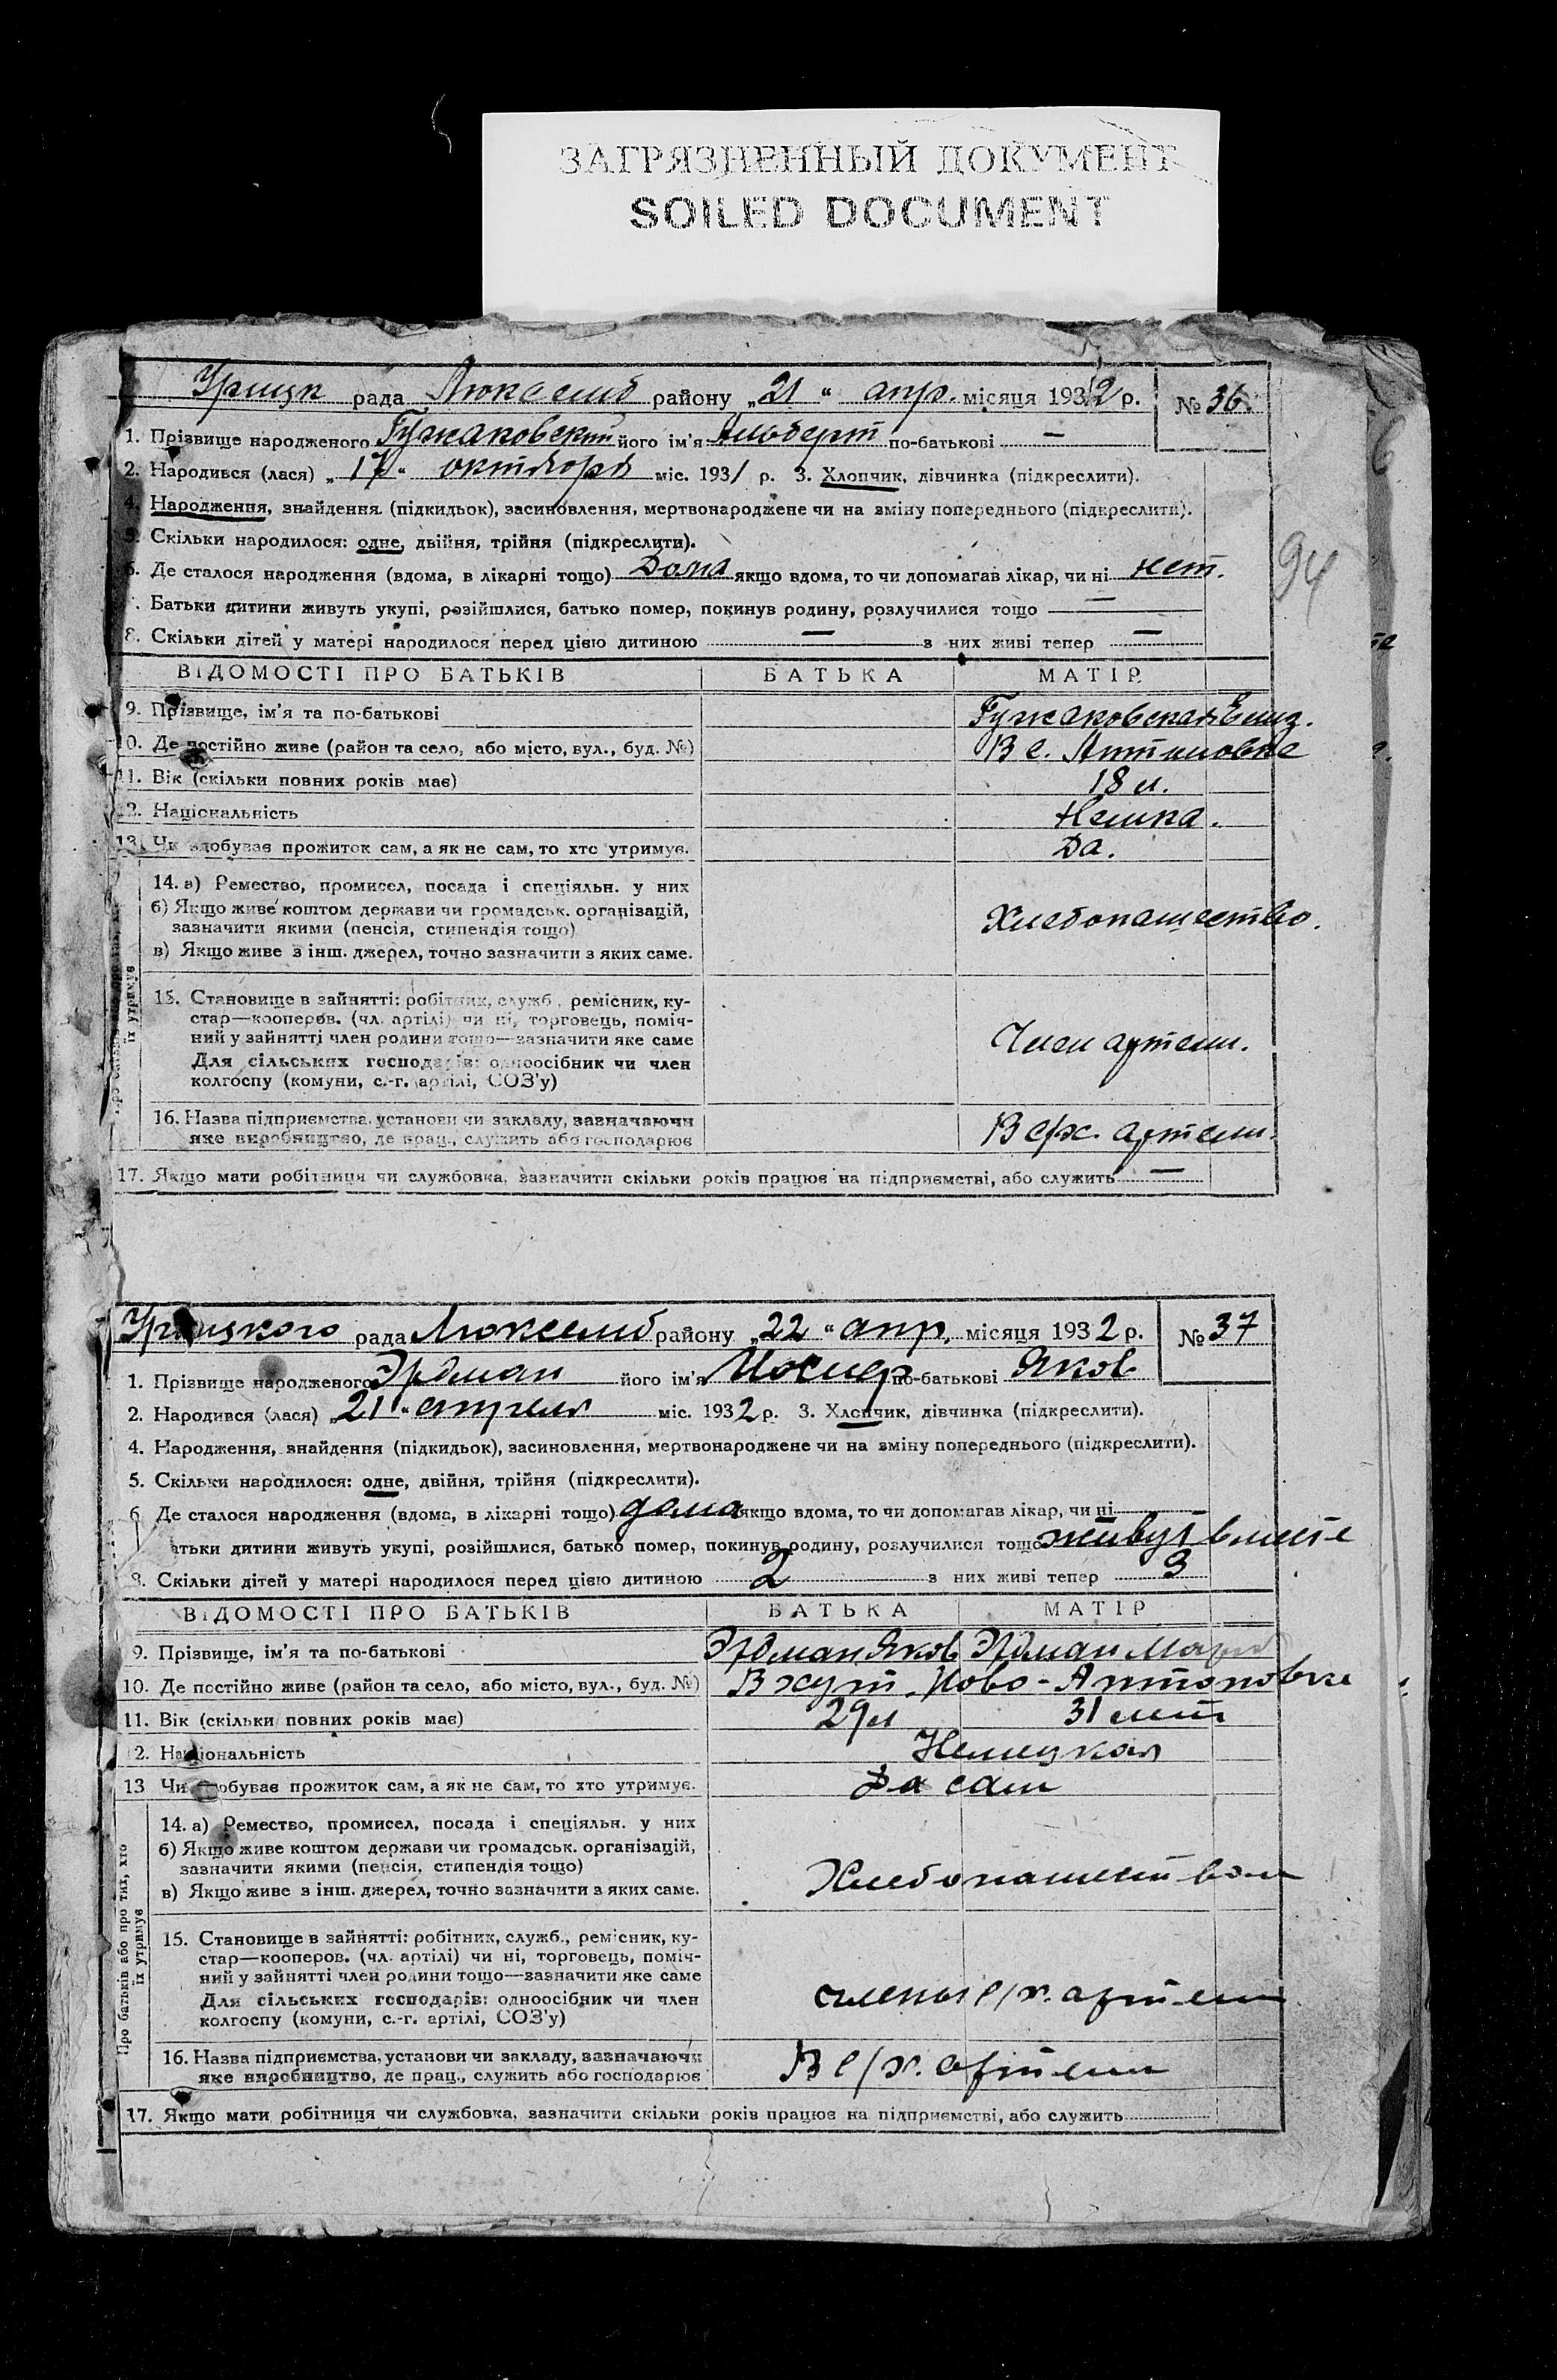 ЗАГРЯЗНЕННЫЙ ДОКУМЕНТ
SOILED DOCUMENT
Урицк рада Люксемб району „21“ апр. місяця 1932 р. № 36
1. Прізвище народженого Гужаковский його ім'я Альберт по-батькові —
2. Народився (лася) „17“ октября міс. 1931 р. 3. Хлопчик, дівчинка (підкреслити).
4. Народження, знайдення (підкидьок), засиновлення, мертвонароджене чи на зміну попереднього (підкреслити).
5. Скільки народилося: одне, двійня, трійня (підкреслити).
94
6. Де сталося народження (вдома, в лікарні тощо) Дома якщо вдома, то чи допомагав лікар, чи ні нет.
. Батьки дитини живуть укупі, розійшлися, батько помер, покинув родину, розлучилися тощо —
8. Скільки дітей у матері народилося перед цією дитиною — з них живі тепер —
ВІДОМОСТІ ПРО БАТЬКІВ БАТЬКА МАТІР
9. Прізвище, ім'я та по-батькові Гужаковская Елиз.
10. Де постійно живе (район та село, або місто, вул., буд. №) В с. Антоновке
11. Вік (скільки повних років має) 18 л.
12. Національність Немка.
13. Чи здобуває прожиток сам, а як не сам, то хто утримує. Да.
14. а) Ремество, промисел, посада і спеціяльн. у них
б) Якщо живе коштом держави чи громадськ. організацій,
зазначити якими (пенсія, стипендія тощо) Хлебопашество.
в) Якщо живе з інш. джерел, точно зазначити з яких саме.
їх утримує
15. Становище в зайнятті: робітник, служб., ремісник, ку-
стар—кооперов. (чл. артілі) чи ні, торговець, поміч-
ний у зайнятті член родини тощо—зазначити яке саме Член артели.
Для сільських господарів: одноосібник чи член
колгоспу (комуни, с.-г. артілі, СОЗ'у)
16. Назва підприємства, установи чи закладу, зазначаючи В с/х. артели.
яке виробництво, де прац., служить або господарює
17. Якщо мати робітниця чи службовка, зазначити скільки років працює на підприємстві, або служить —
Урицкого рада Люксемб району „22“ апр. місяця 1932 р. № 37
1. Прізвище народженого Эрдман його ім'я Иосиф по-батькові Яков
2. Народився (лася) „21“ апреля міс. 1932 р. 3. Хлопчик, дівчинка (підкреслити).
4. Народження, знайдення (підкидьок), засиновлення, мертвонароджене чи на зміну попереднього (підкреслити).
5. Скільки народилося: одне, двійня, трійня (підкреслити).
6. Де сталося народження (вдома, в лікарні тощо) дома якщо вдома, то чи допомагав лікар, чи ні
атьки дитини живуть укупі, розійшлися, батько помер, покинув родину, розлучилися тощо живут вместе
8. Скільки дітей у матері народилося перед цією дитиною 2 з них живі тепер 3
ВІДОМОСТІ ПРО БАТЬКІВ БАТЬКА МАТІР
9. Прізвище, ім'я та по-батькові Эрдман Яков Эрдман Мария
10. Де постійно живе (район та село, або місто, вул., буд. №) В хут. Ново-Антоновке
11. Вік (скільки повних років має) 29 л 31 лет
12. Національність Немецкая
13 Чи здобуває прожиток сам, а як не сам, то хто утримує. Да сам
14. а) Ремество, промисел, посада і спеціяльн. у них
б) Якщо живе коштом держави чи громадськ. організацій,
зазначити якими (пенсія, стипендія тощо) Хлебопашеством
в) Якщо живе з інш. джерел, точно зазначити з яких саме.
Про батьків або про тих, хто їх утримує
15. Становище в зайнятті: робітник, служб., ремісник, ку-
стар—кооперов. (чл. артілі) чи ні, торговець, поміч-
ний у зайнятті член родини тощо—зазначити яке саме
Для сільських господарів: одноосібник чи член члены с/х. артели
колгоспу (комуни, с.-г. артілі, СОЗ'у)
16. Назва підприємства, установи чи закладу, зазначаючи В с/х. артели
яке виробництво, де прац., служить або господарює
17. Якщо мати робітниця чи службовка, зазначити скільки років працює на підприємстві, або служить